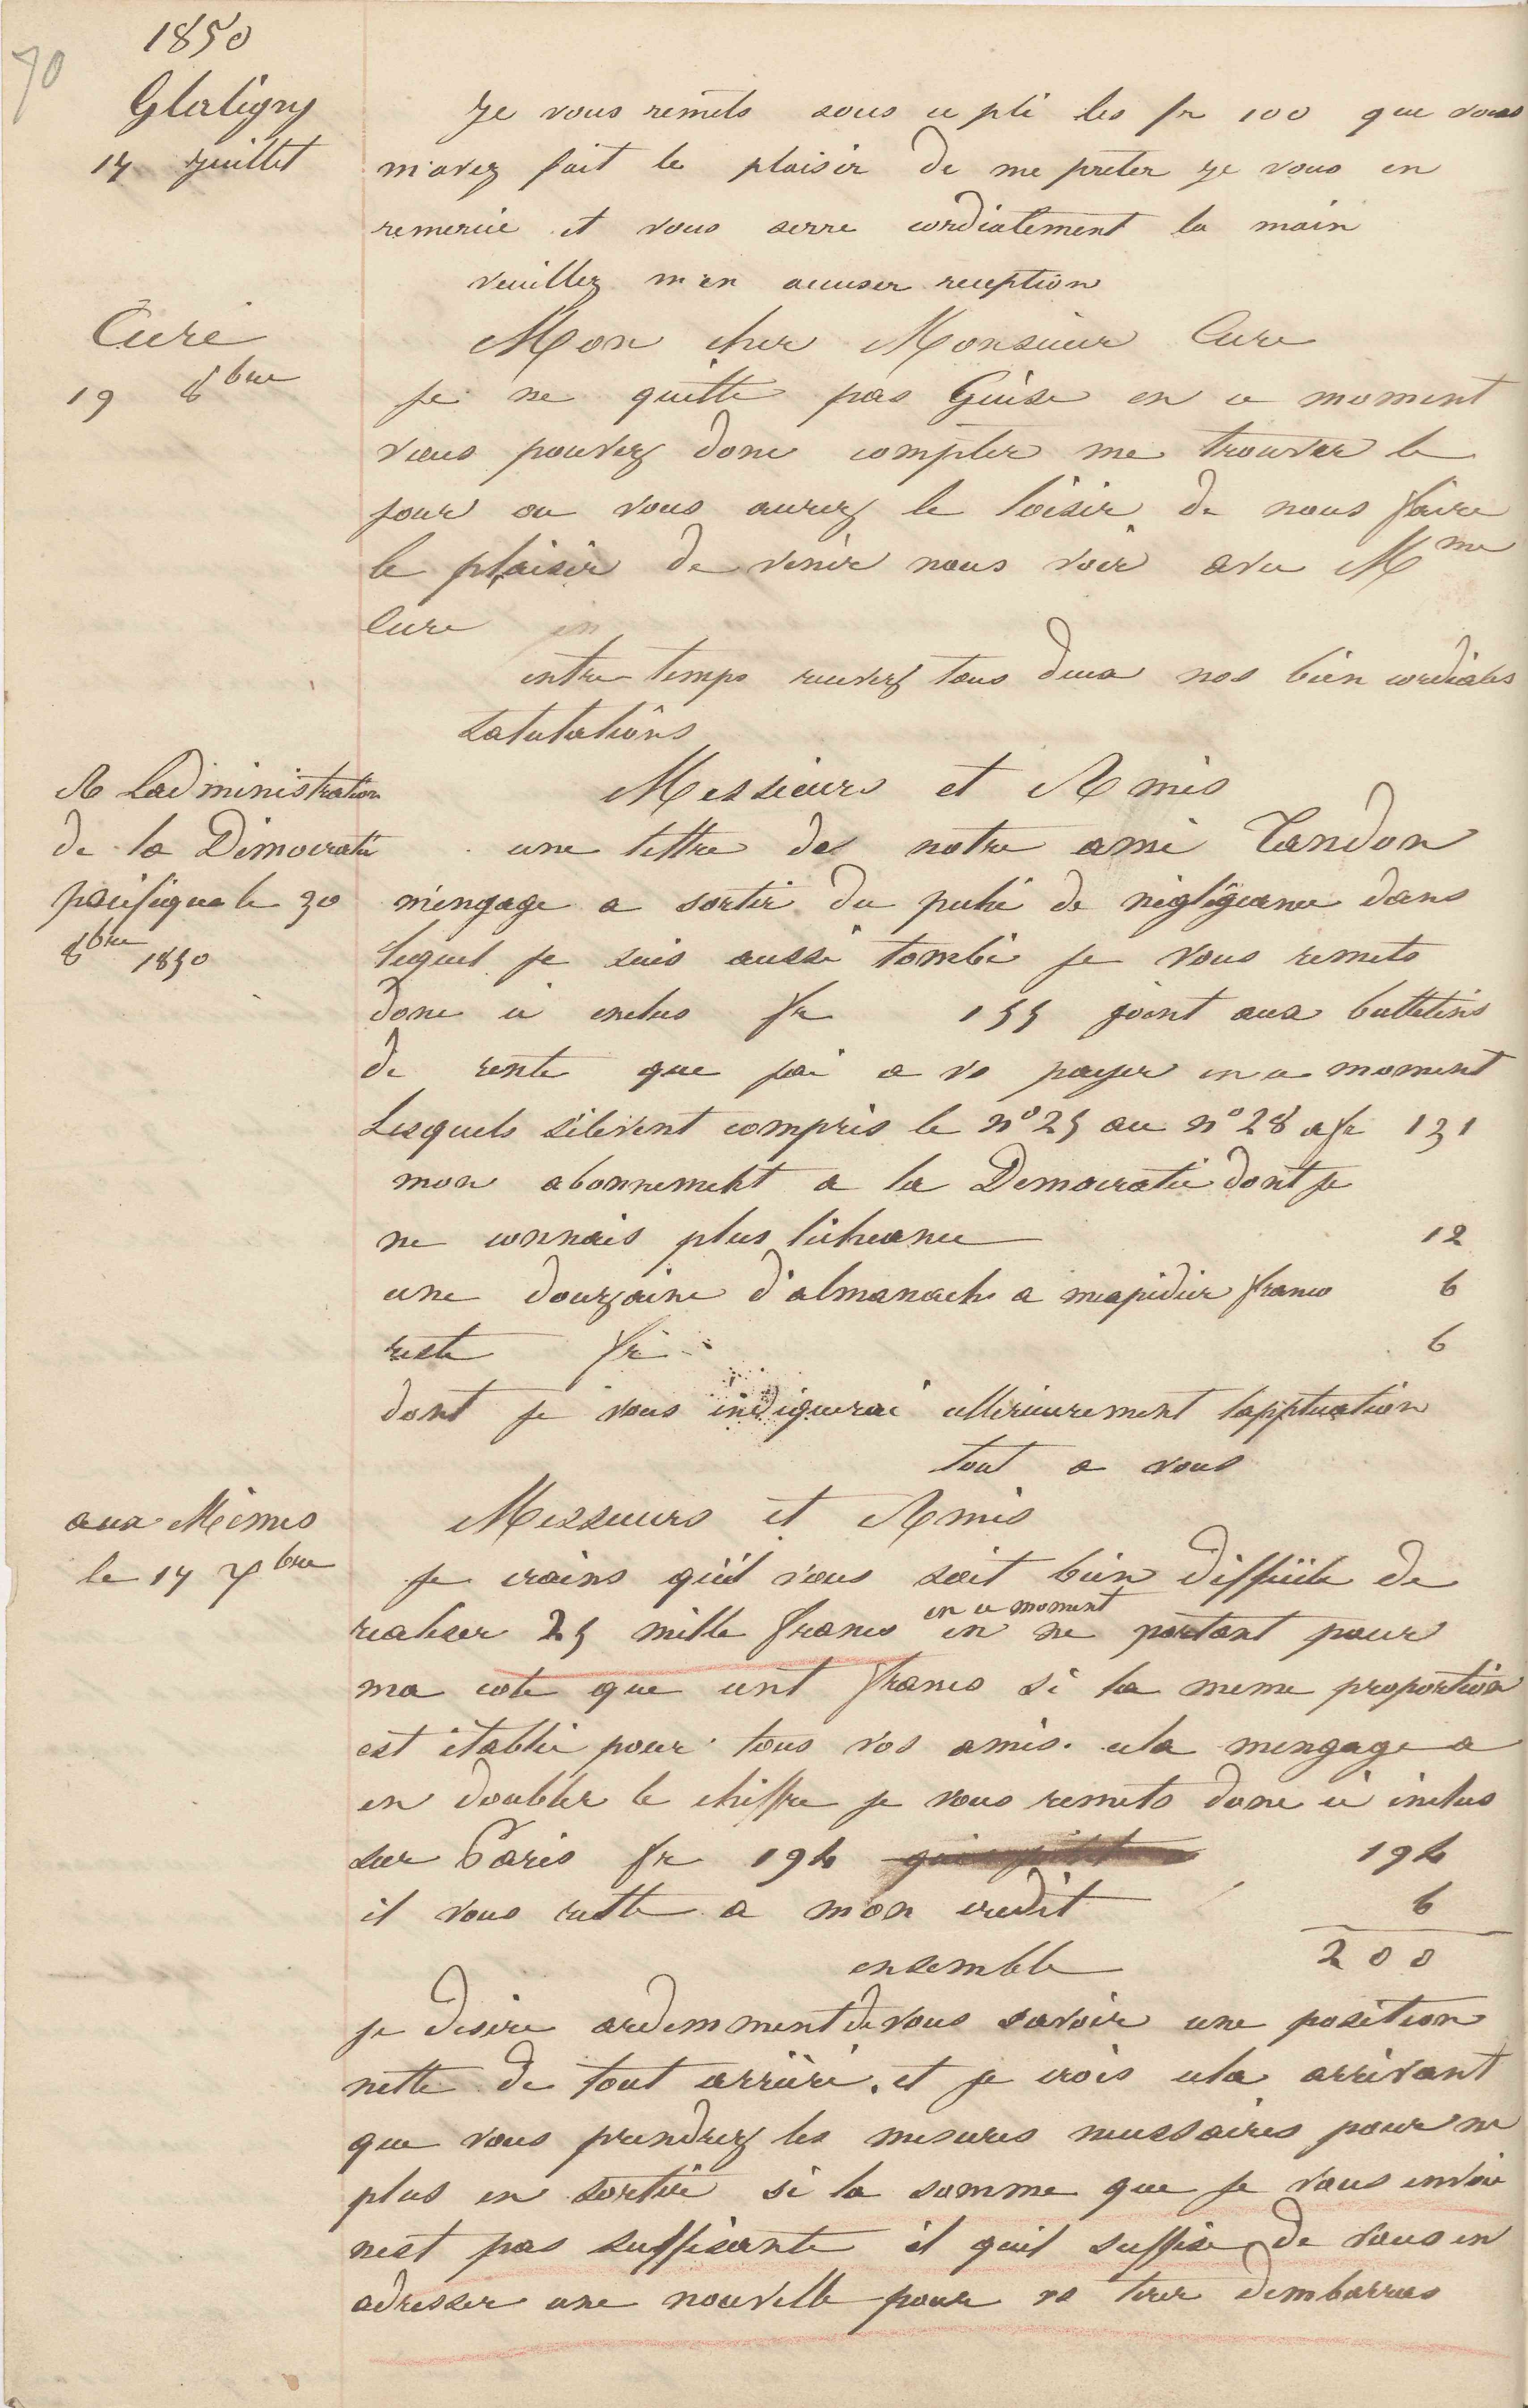 70
1850
Glatigny
17 Juillet
Je vous remets sous ce pli les fr 100 que vous
m'avez fait le plaisir de me preter je vous en
remercie et vous serre cordialement la main
veuillez m'en accuser reception
Curé
19 8bre
Mon cher Monsieur Cure
je ne quitte pas Guise en ce moment
vous pouvez donc compter me trouver le
jour ou vous aurez le loisir de nous faire
le plaisir de venir nous voir avec Mme
Cure
entre temps recevez tous deux nos bien cordiales
salutations
A Ladministration
de la Démocratie
pacifique le 30
8bre 1850
Messieurs et Amis
une lettre de notre ami Tandon
m'engage a sortir du péché de négligeance dans
lequel je suis aussi tombé je vous remets
donc ci inclus fr 155 joint aux bulletins
de rente que jai a vs payer en ce moment
Lesquels s'élevent compris le n° 25 au n° 28 a fr 131
mon abonnement a la Democratie dont je
ne connais plus l'écheance 12
une douzaine d'almanachs a mexpédier franco 6
reste fr 6
dont je vous indiquerai ultérieurement lapptication
tout a vous
aux Mêmes
le 17 Xbre
Messieurs et Amis
je crains qu'il vous soit bien difficile de
realiser 25 mille francs en ce moment en ne portant pour
ma cote que cent francs si la meme proportion
est établie pour tous vos amis. cela mengage a
en doubler le chiffre je vous remets donc ci inclus
sur Paris fr 194 194
il vous reste a mon credit 6
ensemble 200
je desire ardemment de vous savoir une position
nette de tout arriéré. et je crois cela arrivant
que vous prendrez les mesures necessaires pour ne
plus en sortir si la somme que je vous envoie
nest pas suffisante il quil suffise de vous en
adresser une nouvelle pour vs tirer dembarras